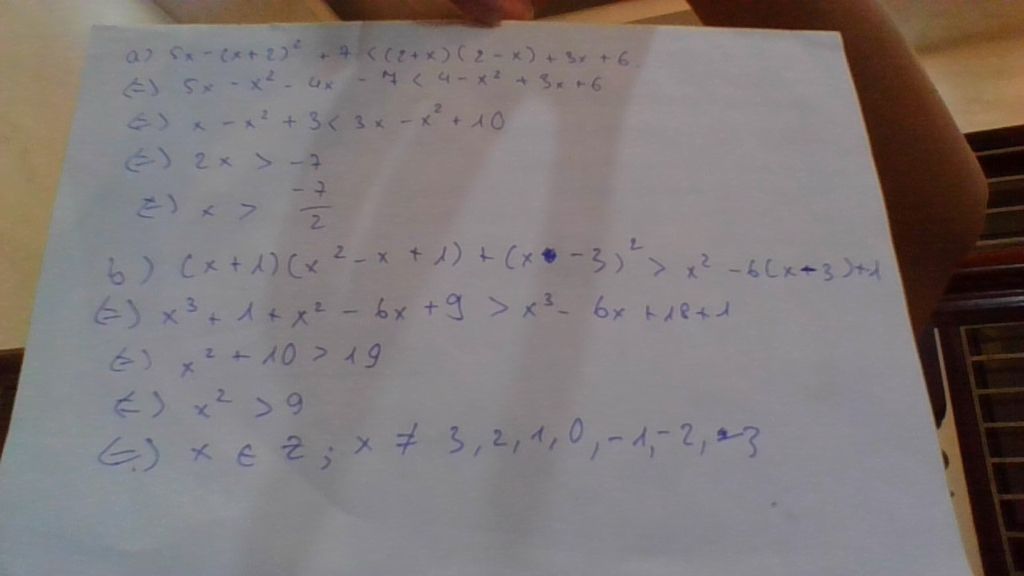 a) 5x - (x+2)² + 7 < (2+x)(2-x) + 3x + 6
(=) 5x - x² - 4x - 7 < 4 - x² + 3x + 6
(=) x - x² + 3 < 3x - x² + 10
(=) 2x > -7
(=) x > -7/2
b) (x+1)(x² - x + 1) + (x - 3)² > x² - 6(x-3)+1
(=) x³ + 1 + x² - 6x + 9 > x³ - 6x + 18 + 1
(=) x² + 10 > 19
(=) x² > 9
(=) x ∈ Z; x ≠ 3, 2, 1, 0, -1, -2, -3